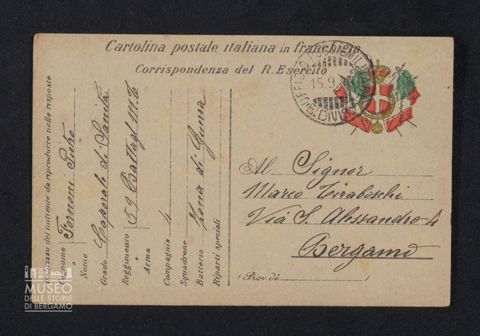 Cartolina postale italiana in franchigia
Corrispondenza del R. Esercito
15.9
Al Signor
Marco Tiraboschi
Via S. Alessandro 4
Bergamo
(Prov. di
Indirizzo del mittente da riprodurre nelle risposte
Cognome Pietro
Nome
Grado Caporale di Sanità
Reggimento 59 Battagl. M.T.
Arma
Compagnia 4
Squadrone
Batteria Zona di Guerra
Riparti speciali
MUSEO
DELLE STORIE
DI BERGAMO